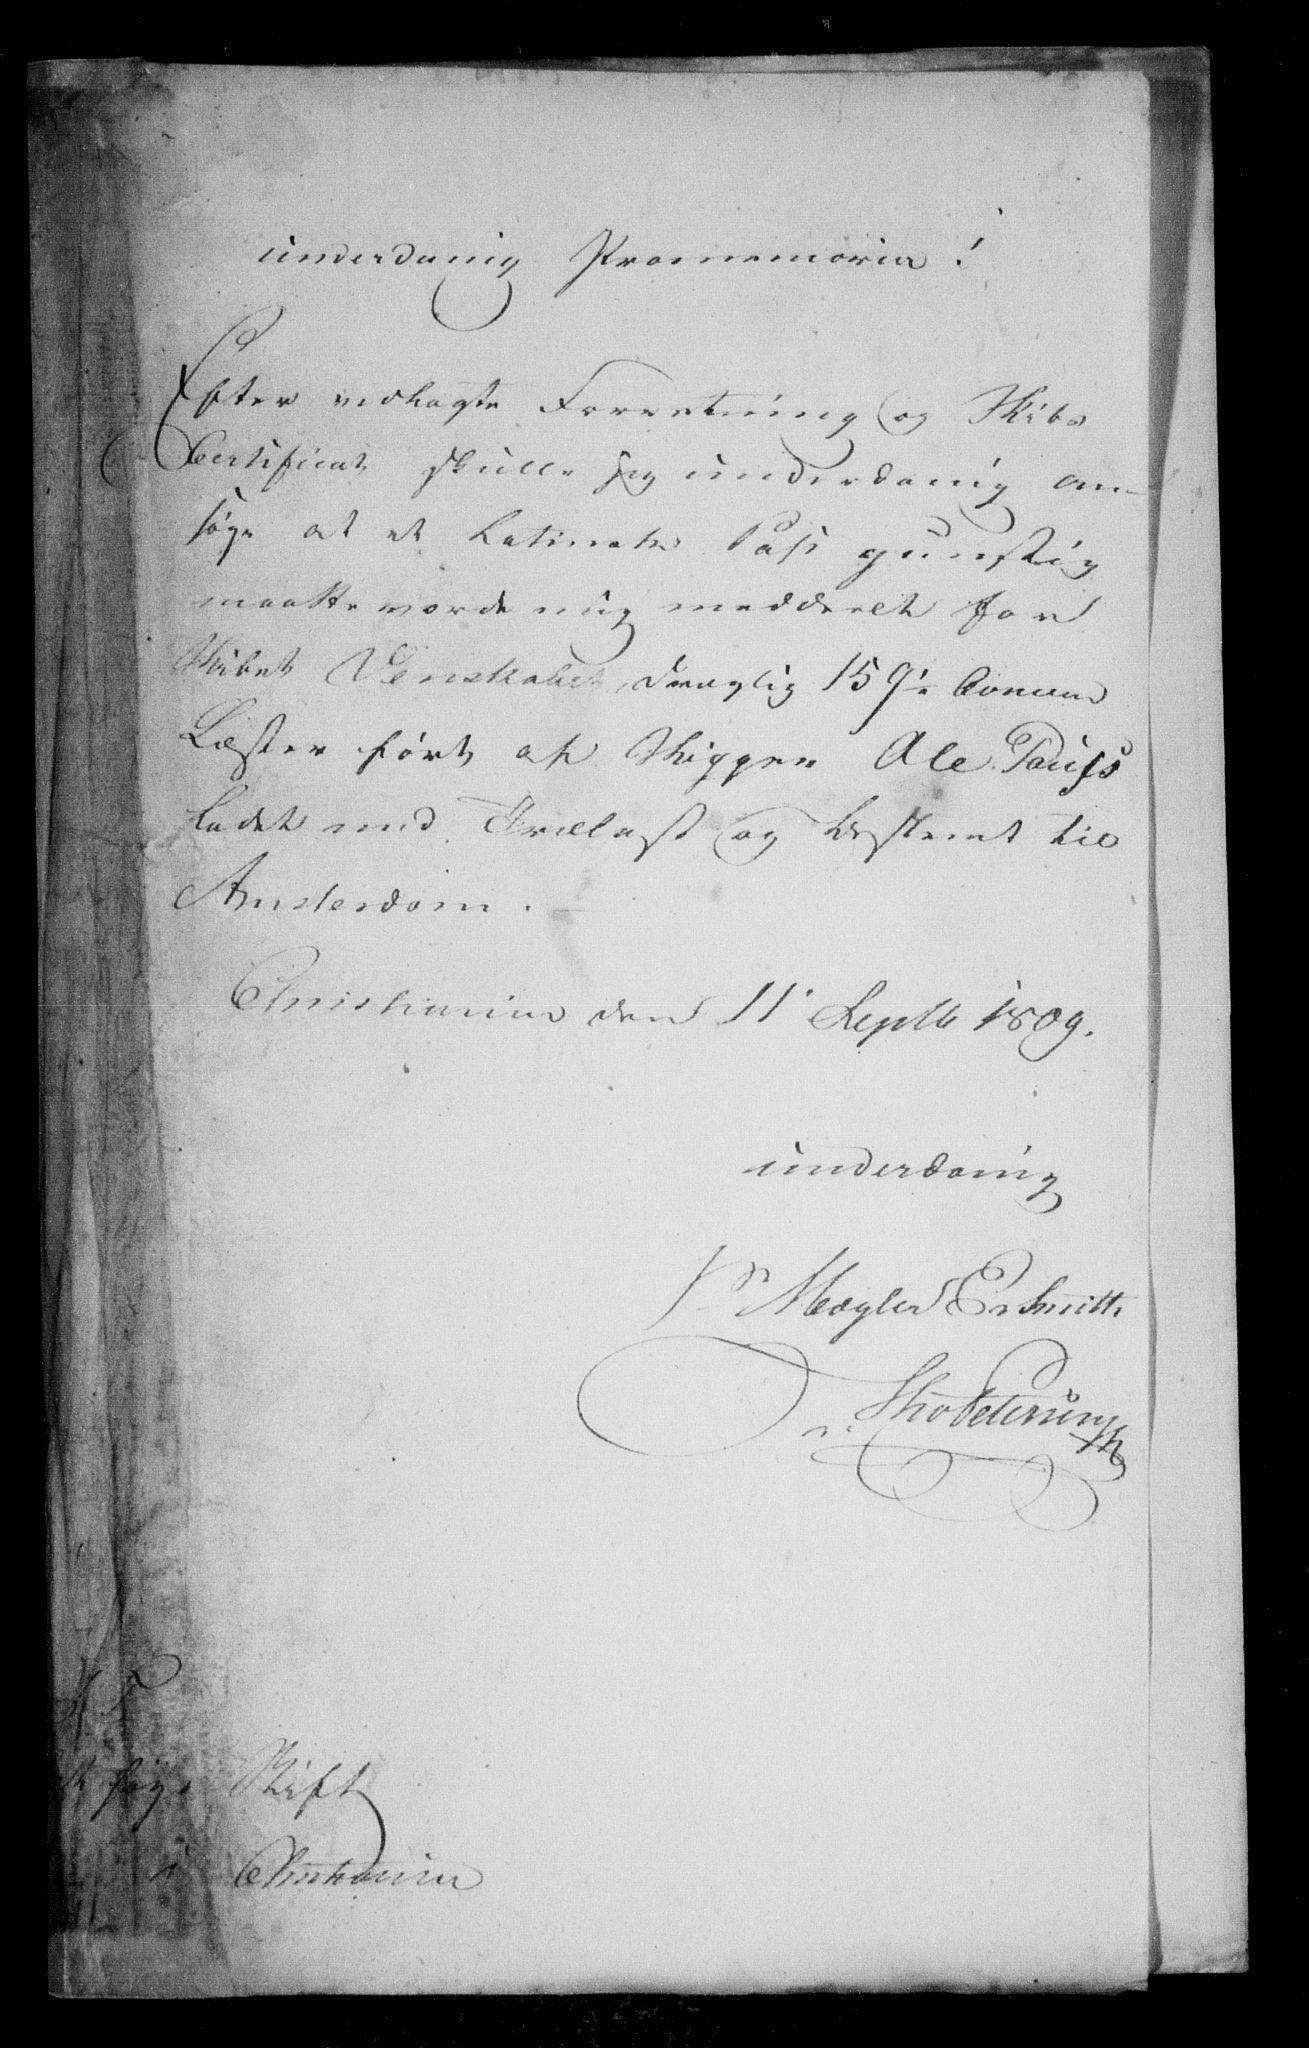 underdanig Promemoria!
Efter vedlagte Forretning og Skibs
Certificat skulle jeg underdanig an-
søge at et Latinsk Pass gunstig
maatte vorde mig meddeelt for
Skibet Venskabet, drægtig 159½ Comerce
Læster ført af Skipper Ole Pauss
Ladet med Trælast og bestemt til
Amsterdam.
Christiania den 11 Septb 1809.
underdanig
pr Mægler E
Petersen
høye Stift
i Christiania